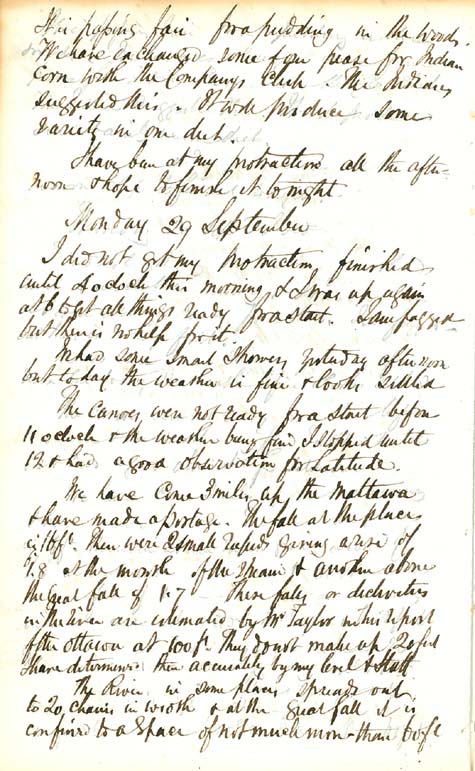 It is passing fair for a pudding in the woods.
We have exchanged some of our pease for Indian
Corn with the Companys Clerk. The Indians
suggested this. It will produce some
variety in our diet.
I have been at my protraction all the after-
noon & hope to finish it tonight.
Monday 29 September
I did not get my protraction finished
until 4 oclock this morning & I was up again
at 6 to get all things ready for a start. I am fagged
but there is no help for it.
We had some small showers yesterday afternoon
but today the weather is fine & looks settled
The Canoes were not ready for a start before
11 oclock & the weather being fine I stopped until
12 & had a good observation for Latitude.
We have come 3 miles up the Mattawa
& have made a portage. The fall at the place
is ft. There were 2 small rapids giving a rise of
1.8 at the mouth of the & another above
the great fall of 1.7 These falls or declivities
in the River are estimated by Mr Taylor in his report
of the Ottawa at 100 ft. They do not make up 20 feet
I have determined them accurately by my level & Staff
The River in some places spreads out
to 20 chains in width & at the great fall it is
confined to a space of not much more than 60 ft